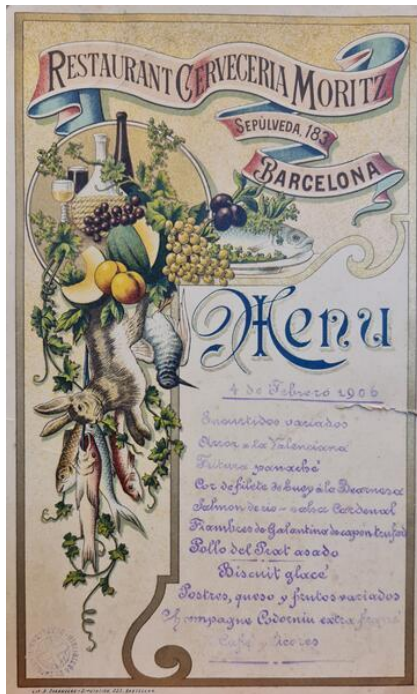 RESTAURANT CERVECERIA MORITZ
SEPÚLVEDA, 183
BARCELONA
Menu
4 de Febrero 1906
Encurtidos variados
Arroz a la Valenciana
Fritura panaché
Cor de filete de buey à la Bearnesa
Salmon de rio - salsa Cardenal
Fiambres de Galantina de capon trufado
Pollo del Prat asado
Biscuit glacé
Postres, queso y frutos variados
Champagne Codorniu extra
Café y licores
BARCELONA